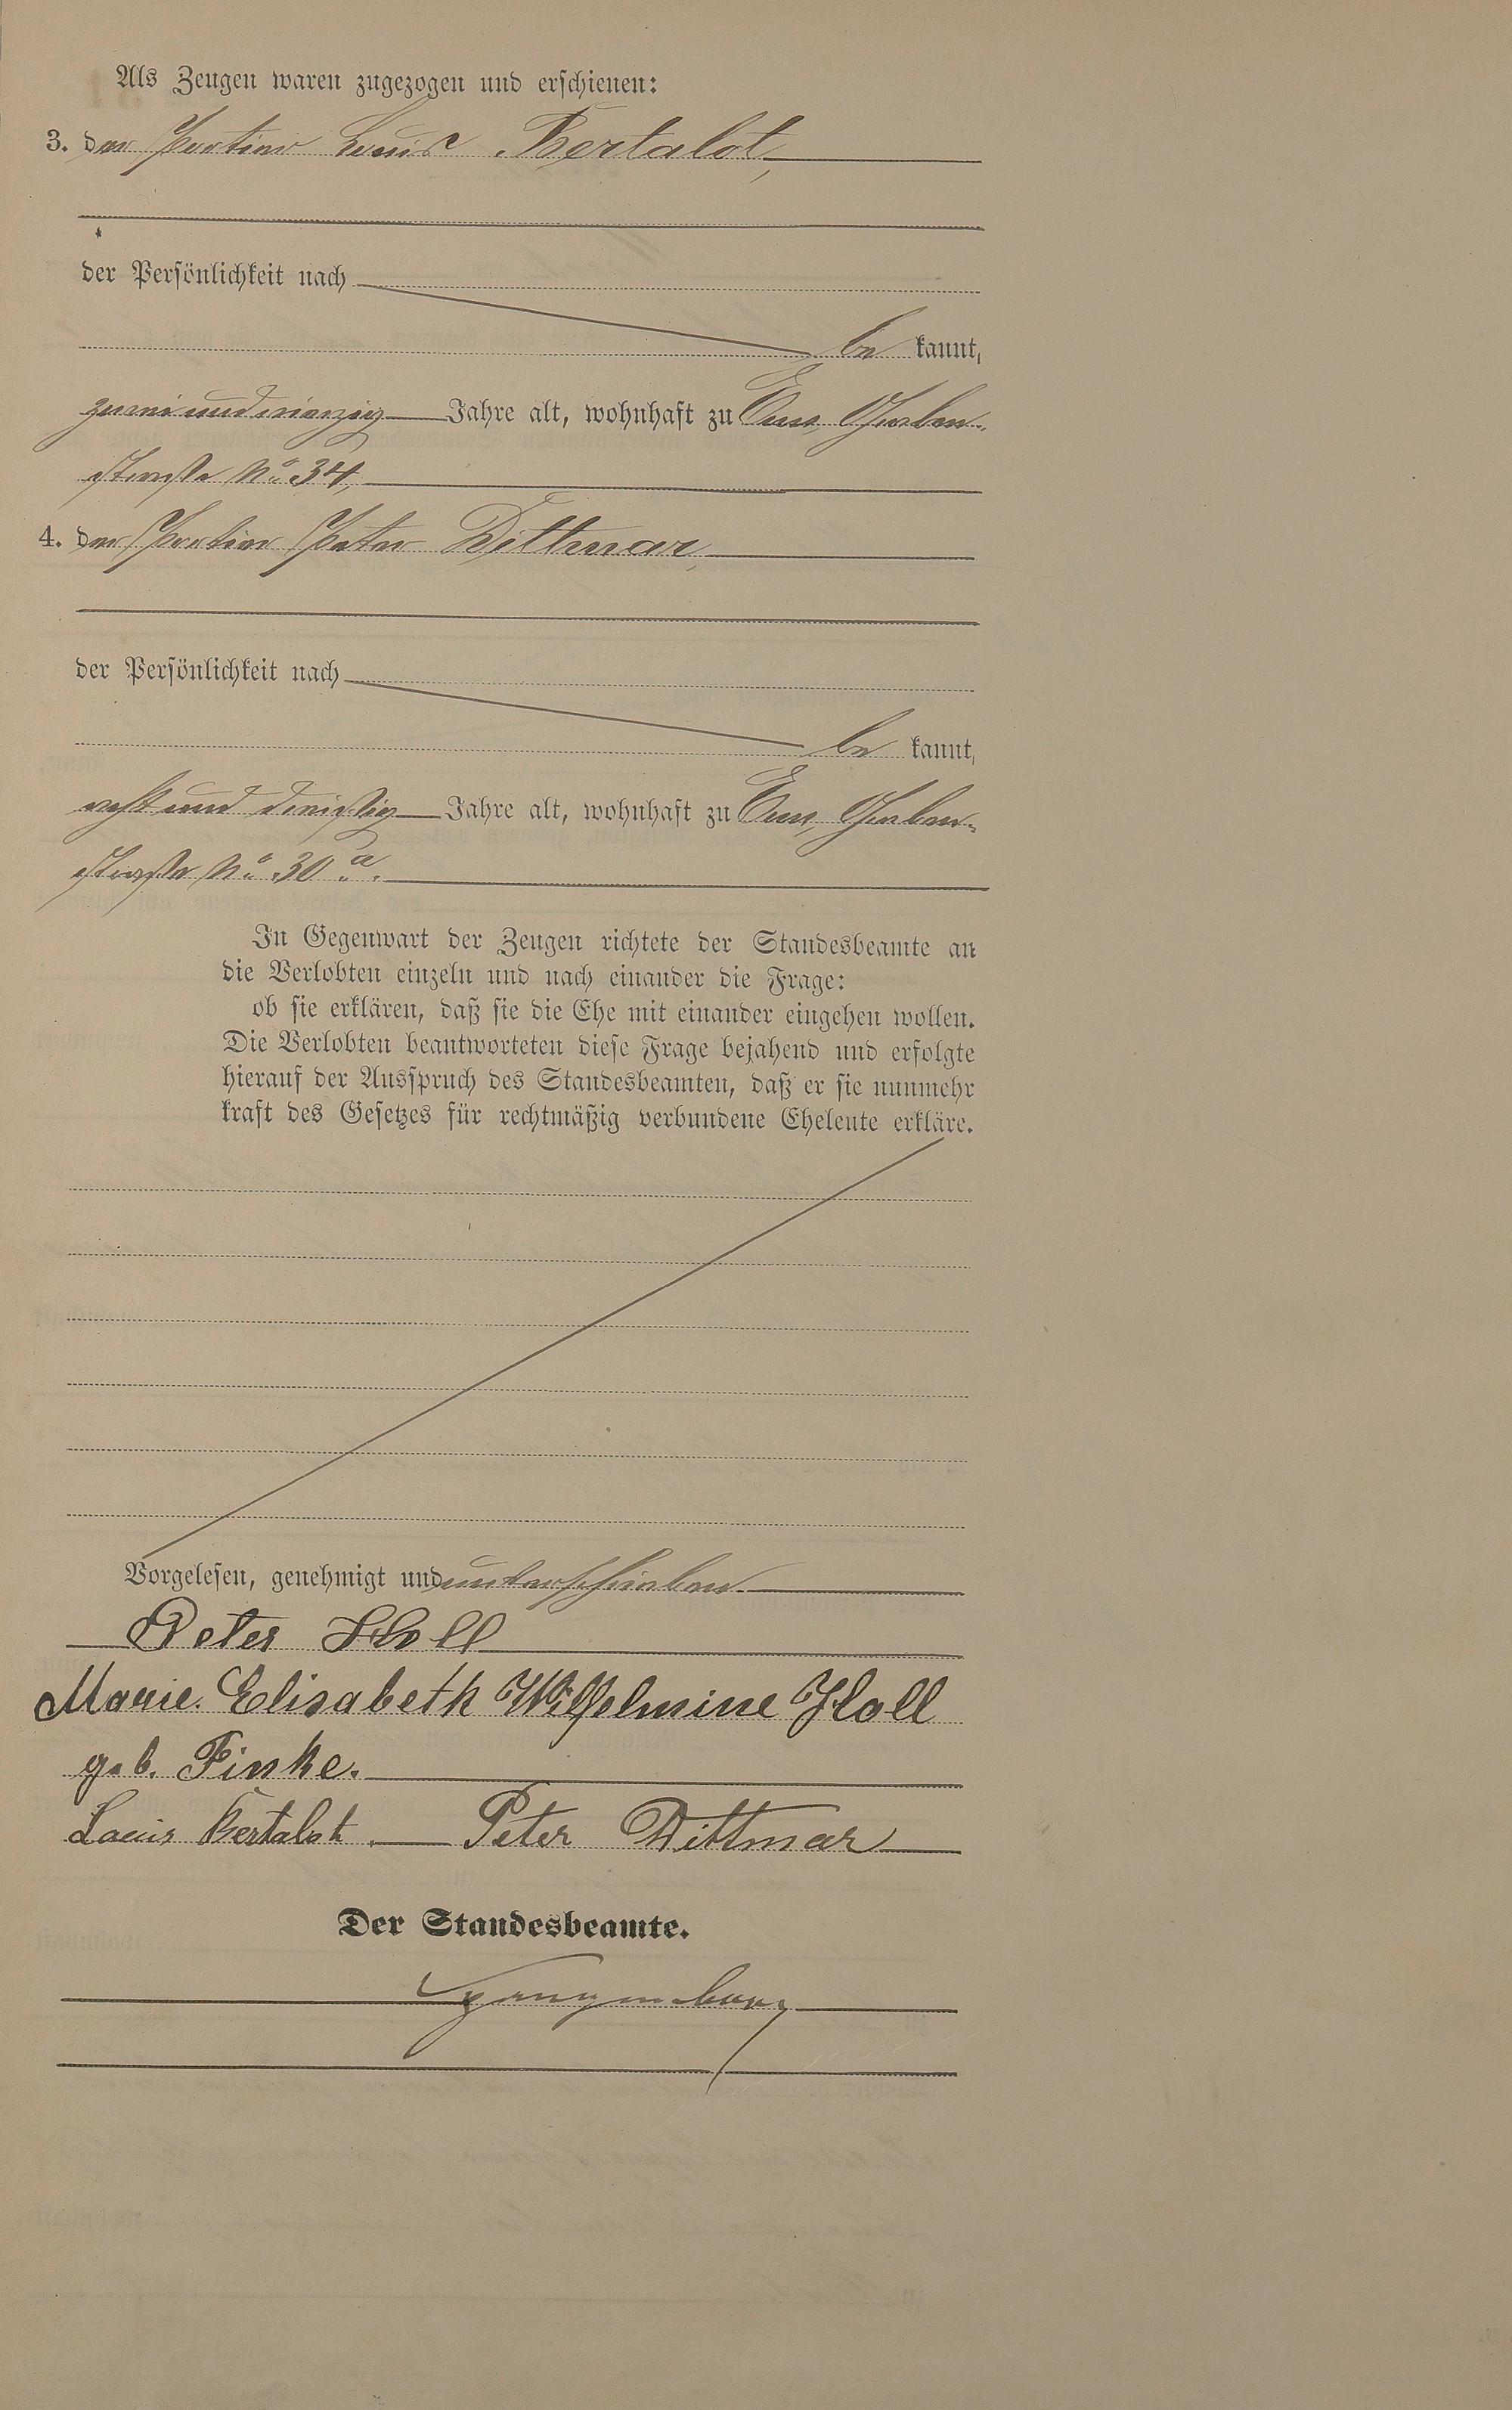 Als Zeugen waren zugezogen und erschienen:
3. der Portier Louis Bertalot,
der Persönlichkeit nach
be kannt,
zweiundvierzig Jahre alt, wohnhaft zu Ems, Graben-
straße No 34,
4. der Portier Peter Dittmar,
der Persönlichkeit nach
be kannt,
acht und dreißig Jahre alt, wohnhaft zu Ems, Graben-
straße No 30 a.
In Gegenwart der Zeugen richtete der Standesbeamte an
die Verlobten einzeln und nach einander die Frage:
ob sie erklären, daß sie die Ehe mit einander eingehen wollen.
Die Verlobten beantworteten diese Frage bejahend und erfolgte
hierauf der Ausspruch des Standesbeamten, daß er sie nunmehr
kraft des Gesetzes für rechtmäßig verbundene Eheleute erkläre.
Vorgelesen, genehmigt und unterschrieben.
Peter Holl
Marie Elisabeth Wilhelmine Holl
geb. Finke.
Louis Bertalot Peter Dittmar
Der Standesbeamte.